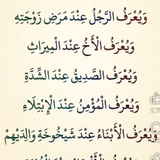 وَيُعْرَفُ الرَّجُلُ عِنْدَ مَرَضِ زَوْجَتِهِ
وَيُعْرَفُ الْأَخُ عِنْدَ الْمِيْرَاثِ
وَيُعْرَفُ الصَّدِيقُ عِنْدَ الشِّدَّةِ
وَيُعْرَفُ الْمُؤْمِنُ عِنْدَ الْإِبْتِلَاءِ
وَيُعْرَفُ الْأَبْنَاءُ عِنْدَ شَيْخُوخَةِ وَالِدَيْهِمْ